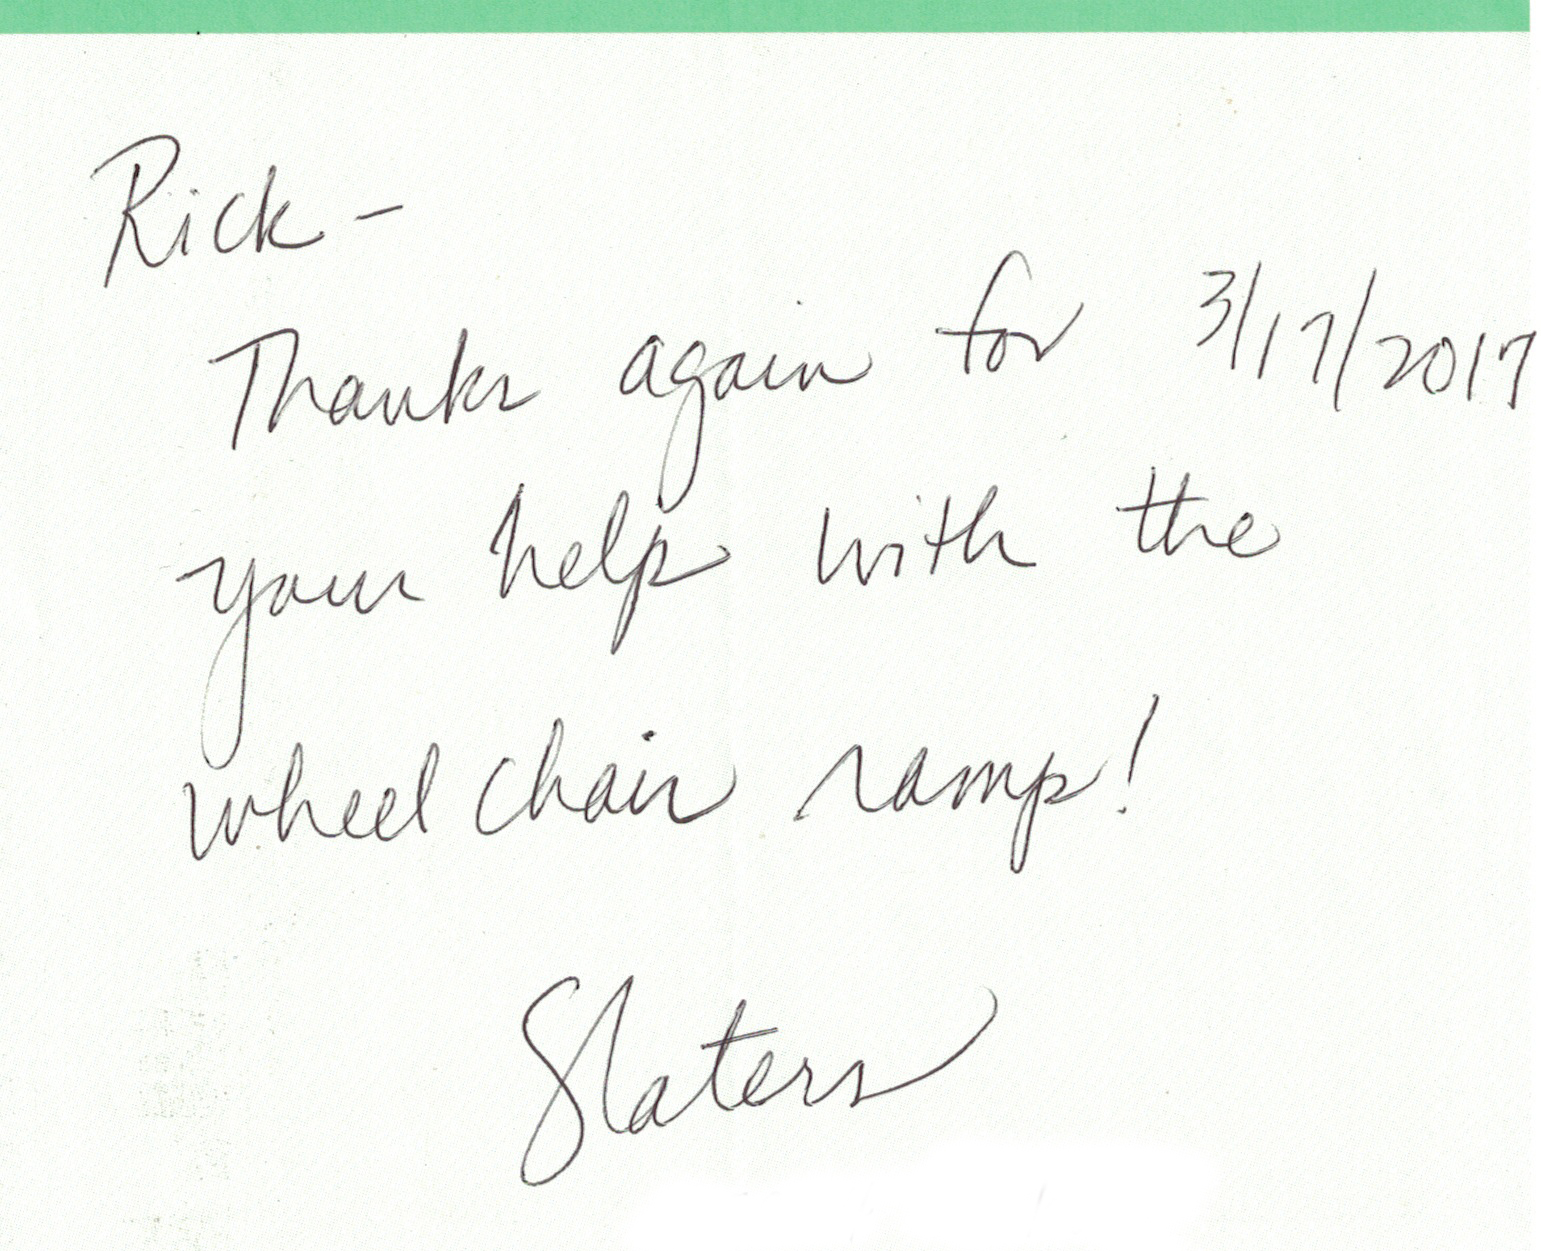 Rick -
Thanks again for 3/17/2017
your help with the
wheel chair ramp!
Slaters